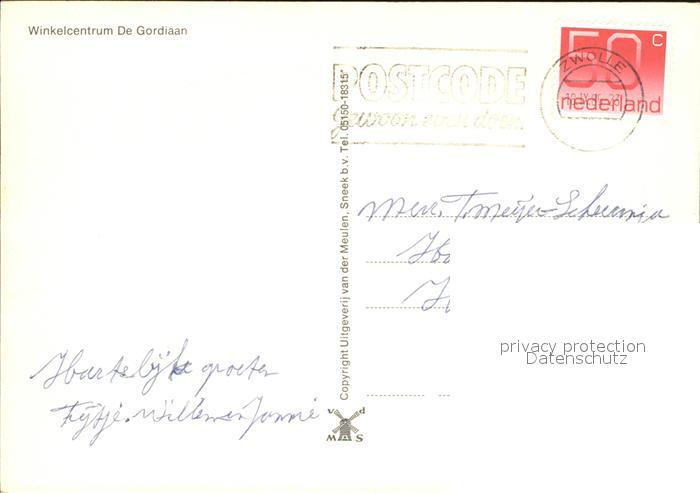 Winkelcentrum De Gordiaan
POSTCODE
gewoon even doen.
ZWOLLE
50 C
nederland
Copyright Uitgeverij van der Meulen, Sneek b.v. Tel. 05150-18315*
Mevr. T. Meijer-Scheernja
privacy protection
Datenschutz
Hartelijke groeten
Fijtje. Willem en Jannie
v d
MAS